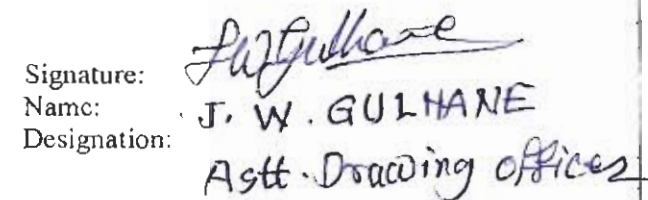 Signature: JWGulhane
Name: J. W. GULHANE
Designation: Astt. Drawing officer